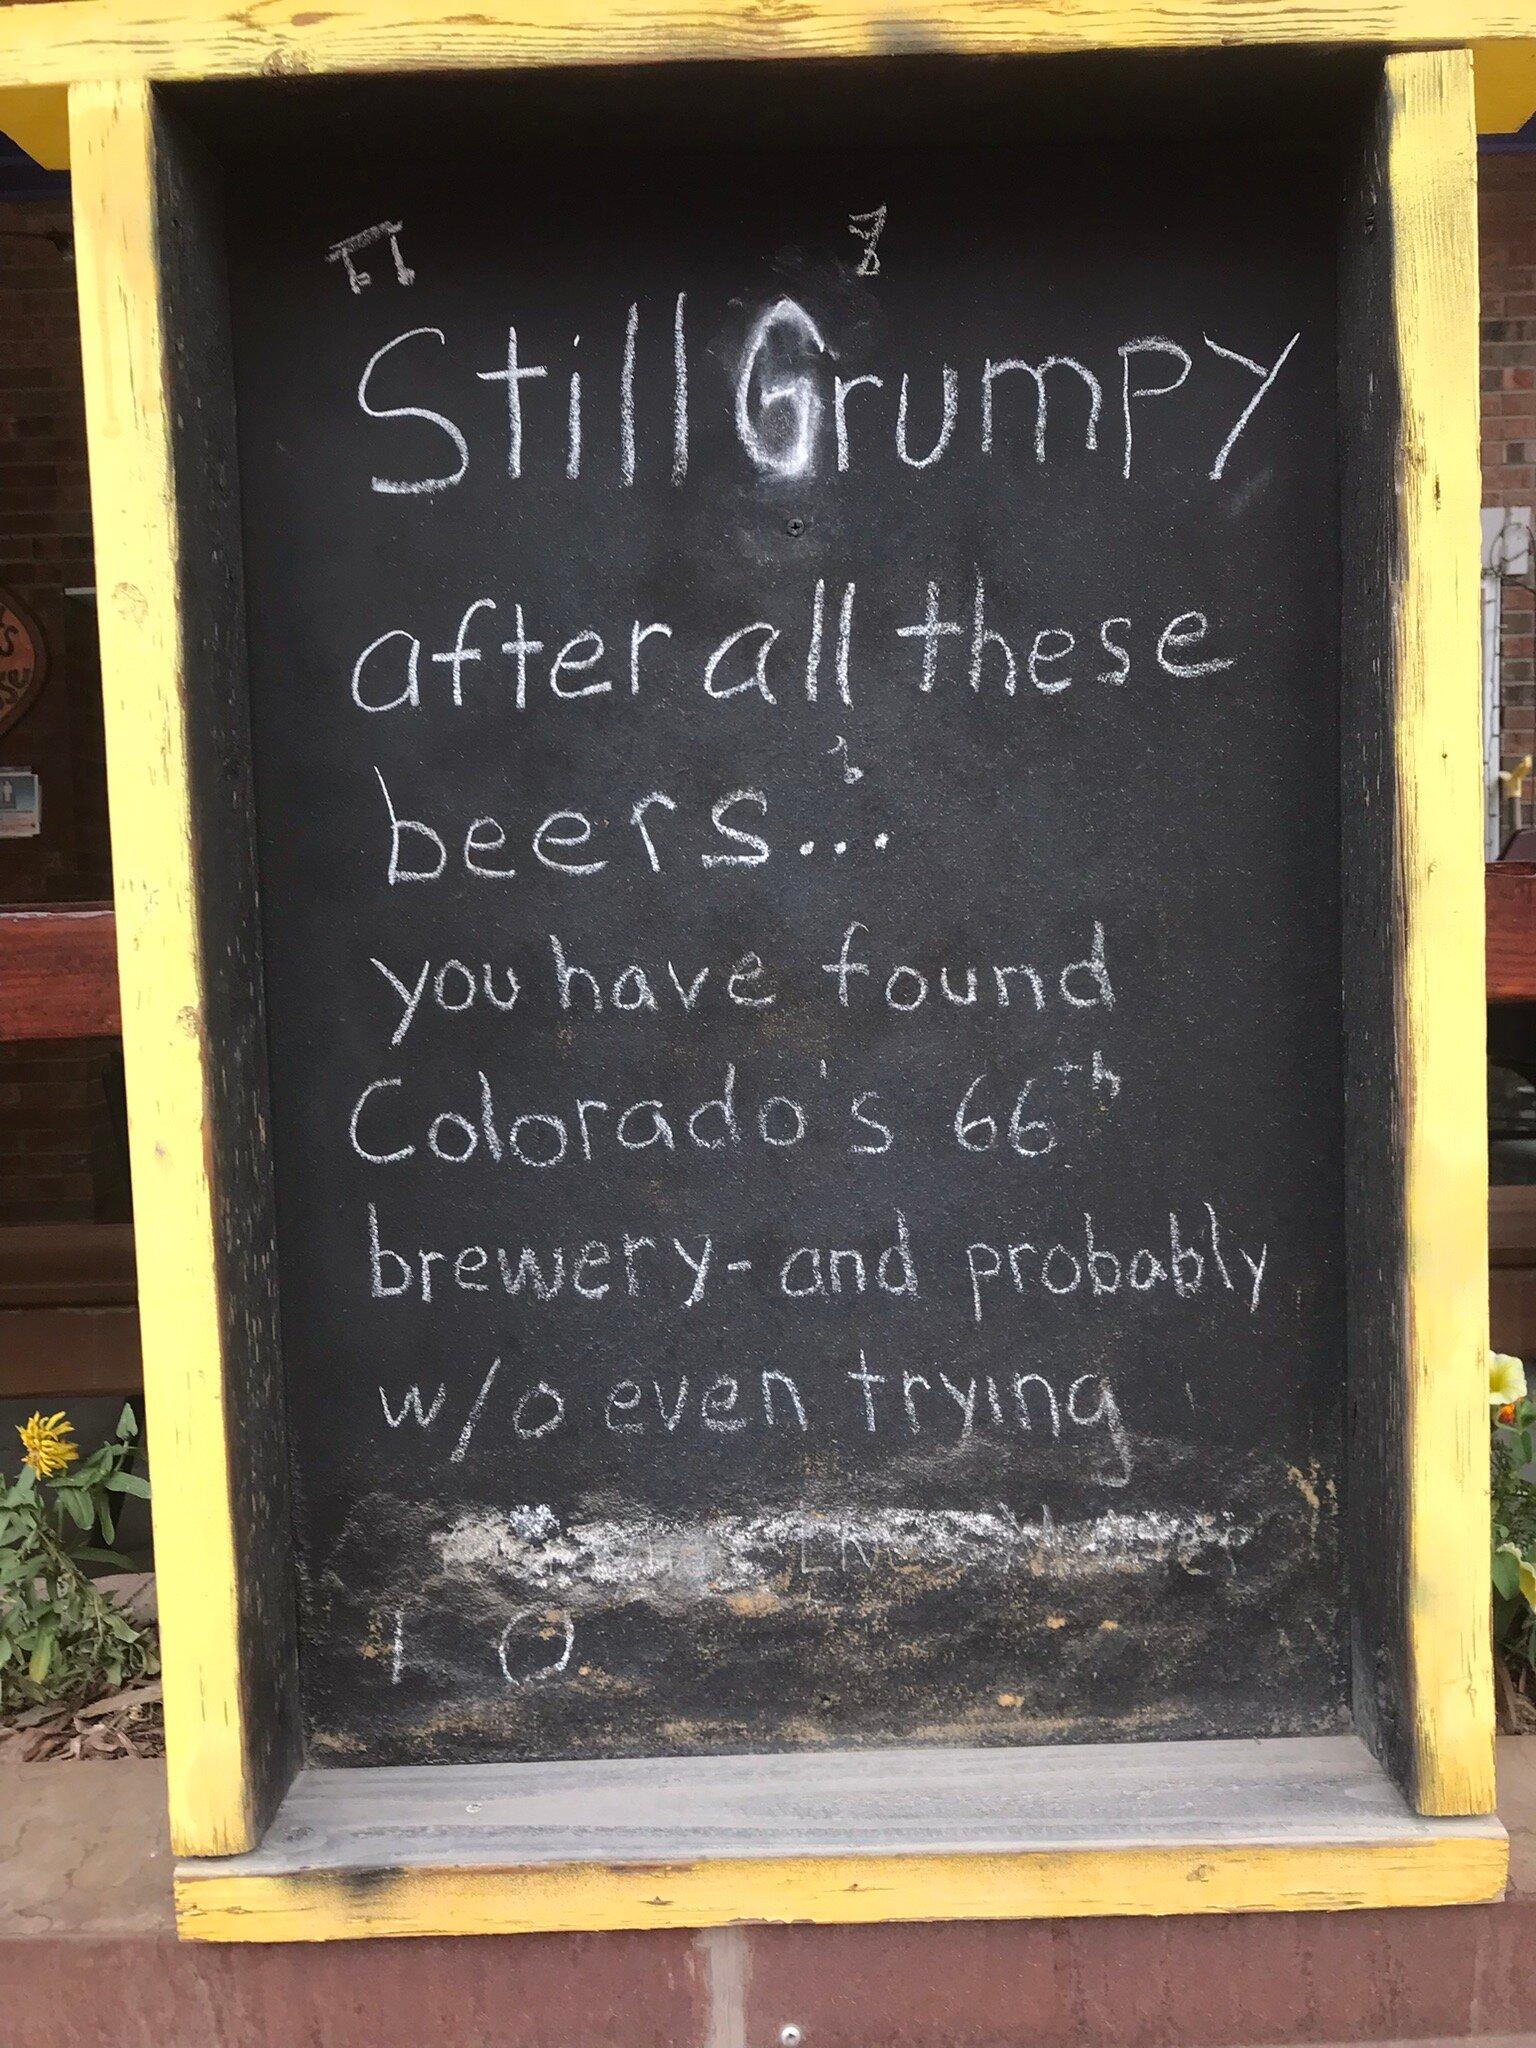 Still Grumpy
after all these
beers...
you have found
Colorado's 66th
brewery- and probably
w/o even trying
Lives Matter